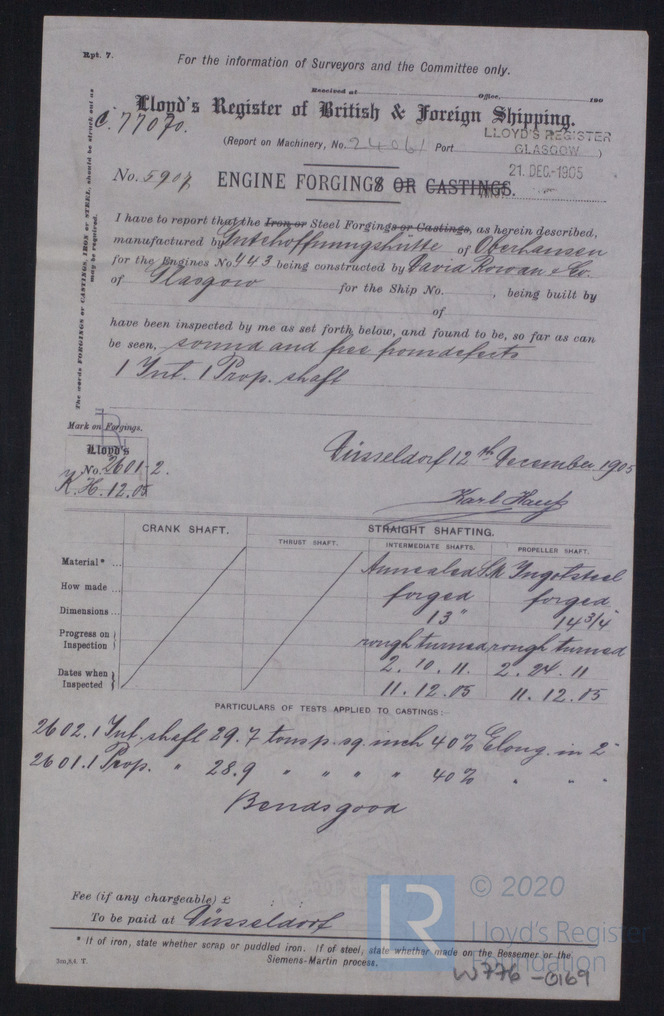 Rpt. 7.
For the information of Surveyors and the Committee only.
Received at Office, 190
Lloyd's Register of British & Foreign Shipping.
C. 77070.
(Report on Machinery, No. 24061 Port )
LLOYD'S REGISTER
GLASGOW
21. DEC. 1905
No. 5907 ENGINE FORGINGS OR CASTINGS.
The words FORGINGS or CASTINGS, IRON or STEEL, should be struck out as
may be required.
I have to report that the Iron or Steel Forgings or Castings, as herein described,
manufactured by Gutehoffnungshütte of Oberhausen
for the Engines No. 443 being constructed by David Rowan & Co.
of Glasgow for the Ship No. , being built by
of
have been inspected by me as set forth below, and found to be, so far as can
be seen, sound and free from defects
1 Int. 1 Prop. shaft
Mark on Forgings.
R
Lloyd's
No. 2601-2.
K.H. 12.05
Düsseldorf 12th December 1905
Karl
CRANK SHAFT. STRAIGHT SHAFTING.
THRUST SHAFT. INTERMEDIATE SHAFTS. PROPELLER SHAFT.
Material* ... Annealed S.M. Ingotsteel
How made ... forged forged
Dimensions ... 13" 14 3/4"
Progress on Inspection rough turned rough turned
2. 10. 11. 2. 24. 11
Dates when Inspected 11. 12. 05 11. 12. 05
PARTICULARS OF TESTS APPLIED TO CASTINGS:—
2602. 1 Int. shaft 29.7 tons p. sq. inch 40% Elong. in 2"
2601. 1 Prop. " 28.9 " " " " 40% " " "
Bends good
Fee (if any chargeable) £ : :
To be paid at Düsseldorf
* If of iron, state whether scrap or puddled iron. If of steel, state whether made on the Bessemer or the
Siemens-Martin process.
W776-0169
LR
© 2020
Lloyd's Register
Foundation